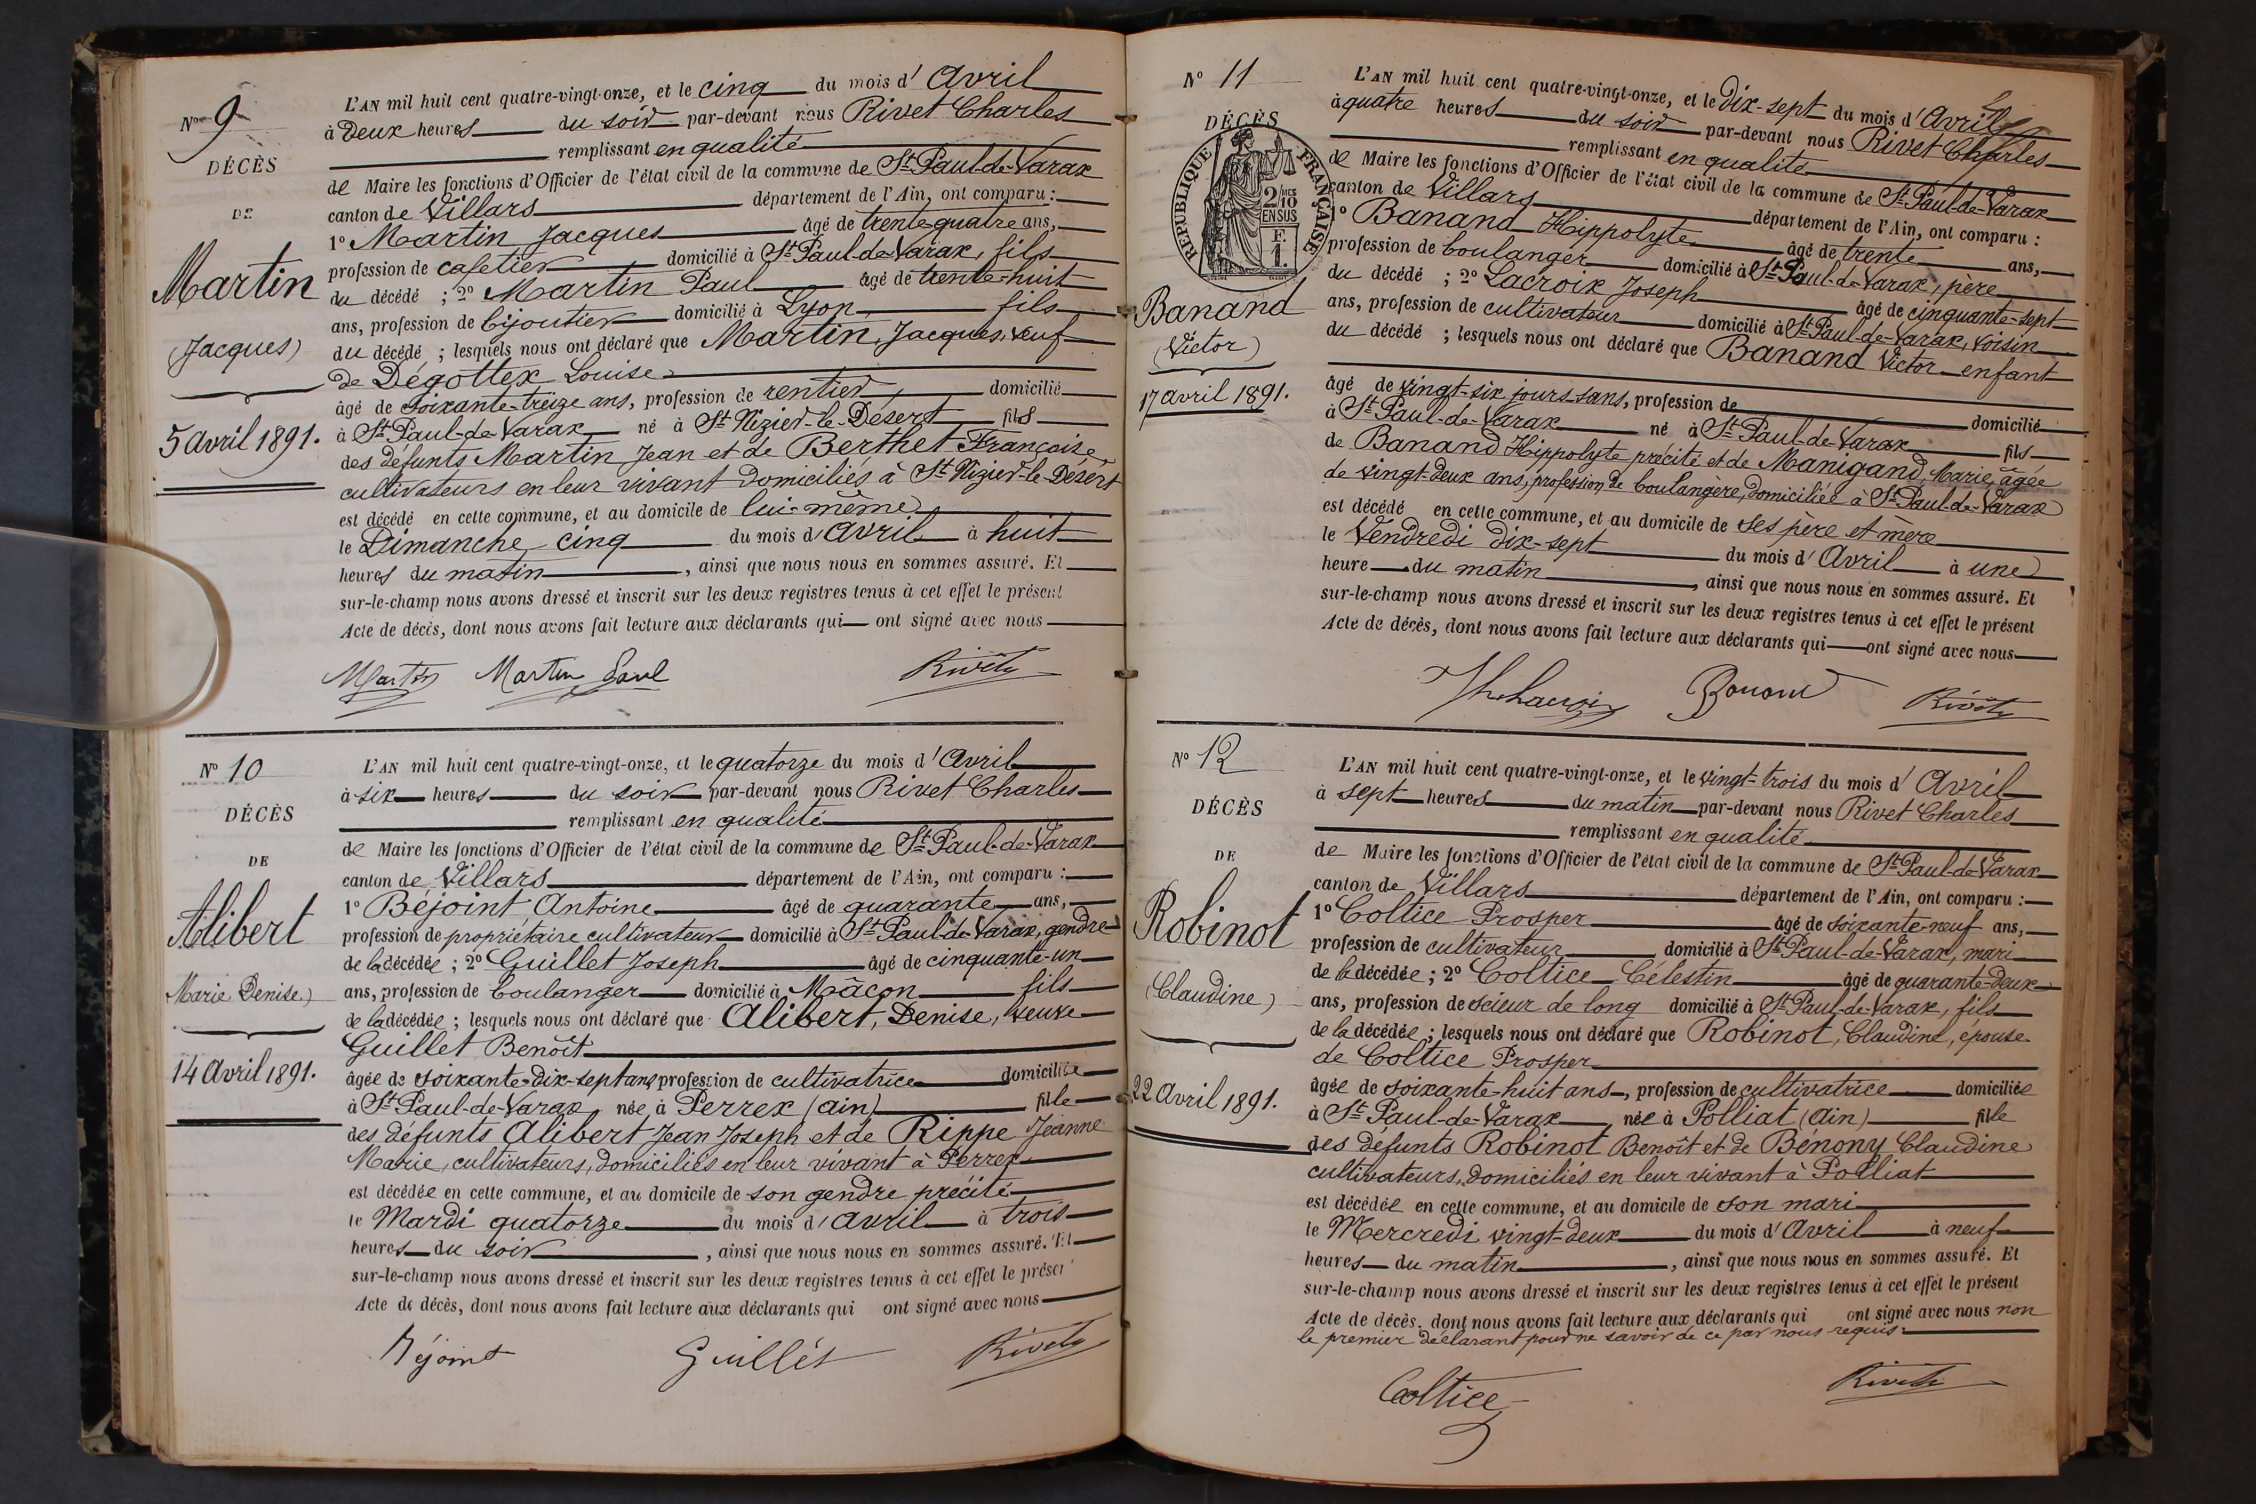 N° 9
DÉCÈS
DE
Martin
(Jacques)
5 avril 1891.
L'AN mil huit cent quatre-vingt-onze, et le cinq du mois d'Avril
à Deux heures du soir par-devant nous Rivet Charles
remplissant en qualité
de Maire les fonctions d'Officier de l'état civil de la commune de St Paul-de-Varax
canton de Villars département de l'Ain, ont comparu :
1° Martin Jacques âgé de trente-quatre ans,
profession de cafetier domicilié à St Paul-de-Varax, fils
du décédé ; 2° Martin Paul âgé de trente-huit
ans, profession de bijoutier domicilié à Lyon, fils
du décédé ; lesquels nous ont déclaré que Martin, Jacques, veuf
de Dégottex Louise
âgé de soixante-treize ans, profession de rentier, domicilié
à St Paul-de-Varax né à St Nizier-le-Désert fils
des défunts Martin Jean et de Berthet Françoise,
cultivateurs en leur vivant domiciliés à St Nizier-le-Désert
est décédé en cette commune, et au domicile de lui-même
le Dimanche cinq du mois d'Avril à huit
heures du matin, ainsi que nous nous en sommes assuré. Et
sur-le-champ nous avons dressé et inscrit sur les deux registres tenus à cet effet le présent
Acte de décès, dont nous avons fait lecture aux déclarants qui ont signé avec nous
Martin Martin Paul Rivet
N° 10
DÉCÈS
DE
Alibert
Marie Denise)
14 Avril 1891.
L'AN mil huit cent quatre-vingt-onze, et le quatorze du mois d'Avril
à six heures du soir par-devant nous Rivet Charles
remplissant en qualité
de Maire les fonctions d'Officier de l'état civil de la commune de St Paul-de-Varax
canton de Villars département de l'Ain, ont comparu :
1° Béjoint Antoine âgé de quarante ans,
profession de propriétaire cultivateur domicilié à St Paul-de-Varax, gendre
de la décédée ; 2° Guillet Joseph âgé de cinquante-un
ans, profession de boulanger domicilié à Mâcon fils
de la décédée ; lesquels nous ont déclaré que Alibert, Denise, veuve
Guillet Benoît
âgée de soixante-dix-sept ans, profession de cultivatrice domiciliée
à St Paul-de-Varax née à Perrex (Ain) fille
des défunts Alibert Jean Joseph et de Rippe Jeanne
Marie, cultivateurs, domiciliés en leur vivant à Perrex
est décédée en cette commune, et au domicile de son gendre précité
le Mardi quatorze du mois d'Avril à trois
heures du soir, ainsi que nous nous en sommes assuré. Et
sur-le-champ nous avons dressé et inscrit sur les deux registres tenus à cet effet le présent
Acte de décès, dont nous avons fait lecture aux déclarants qui ont signé avec nous
Béjoint Guillet Rivet
N° 11
DÉCÈS
RÉPUBLIQUE FRANÇAISE
2/10 EN SUS
F. 1.
Banand
(Victor)
17 avril 1891.
L'AN mil huit cent quatre-vingt-onze, et le dix-sept du mois d'Avril
à quatre heures du soir par-devant nous Rivet Charles
remplissant en qualité
de Maire les fonctions d'Officier de l'état civil de la commune de St Paul-de-Varax
canton de Villars département de l'Ain, ont comparu :
1° Banand Hippolyte âgé de trente ans,
profession de boulanger domicilié à St Paul-de-Varax, père
du décédé ; 2° Lacroix Joseph âgé de cinquante-sept
ans, profession de cultivateur domicilié à St Paul-de-Varax, voisin
du décédé ; lesquels nous ont déclaré que Banand Victor enfant
âgé de vingt-six jours sans, profession de domicilié
à St Paul-de-Varax né à St Paul-de-Varax fils
de Banand Hippolyte précité et de Manigand, Marie, âgée
de vingt-deux ans, profession de boulangère, domiciliée à St Paul-de-Varax
est décédé en cette commune, et au domicile de ses père et mère
le Vendredi dix-sept du mois d'Avril à une
heure du matin, ainsi que nous nous en sommes assuré. Et
sur-le-champ nous avons dressé et inscrit sur les deux registres tenus à cet effet le présent
Acte de décès, dont nous avons fait lecture aux déclarants qui ont signé avec nous
Jh Lacroix Banand Rivet
N° 12
DÉCÈS
DE
Robinot
(Claudine)
22 Avril 1891.
L'AN mil huit cent quatre-vingt-onze, et le vingt-trois du mois d'Avril
à sept heures du matin par-devant nous Rivet Charles
remplissant en qualité
de Maire les fonctions d'Officier de l'état civil de la commune de St Paul-de-Varax
canton de Villars département de l'Ain, ont comparu :
1° Coltice Prosper âgé de soixante-neuf ans,
profession de cultivateur domicilié à St Paul-de-Varax, mari
de la décédée ; 2° Coltice Célestin âgé de quarante-deux
ans, profession de scieur de long domicilié à St Paul-de-Varax, fils
de la décédée ; lesquels nous ont déclaré que Robinot, Claudine, épouse
de Coltice Prosper
âgée de soixante-huit ans, profession de cultivatrice domiciliée
à St Paul-de-Varax, née à Polliat (Ain) fille
des défunts Robinot Benoît et de Bénony Claudine
cultivateurs, domiciliés en leur vivant à Polliat
est décédée en cette commune, et au domicile de son mari
le Mercredi vingt-deux du mois d'Avril à neuf
heures du matin, ainsi que nous nous en sommes assuré. Et
sur-le-champ nous avons dressé et inscrit sur les deux registres tenus à cet effet le présent
Acte de décès, dont nous avons fait lecture aux déclarants qui ont signé avec nous non
le premier déclarant pour ne savoir de ce par nous requis.
Coltice Rivet